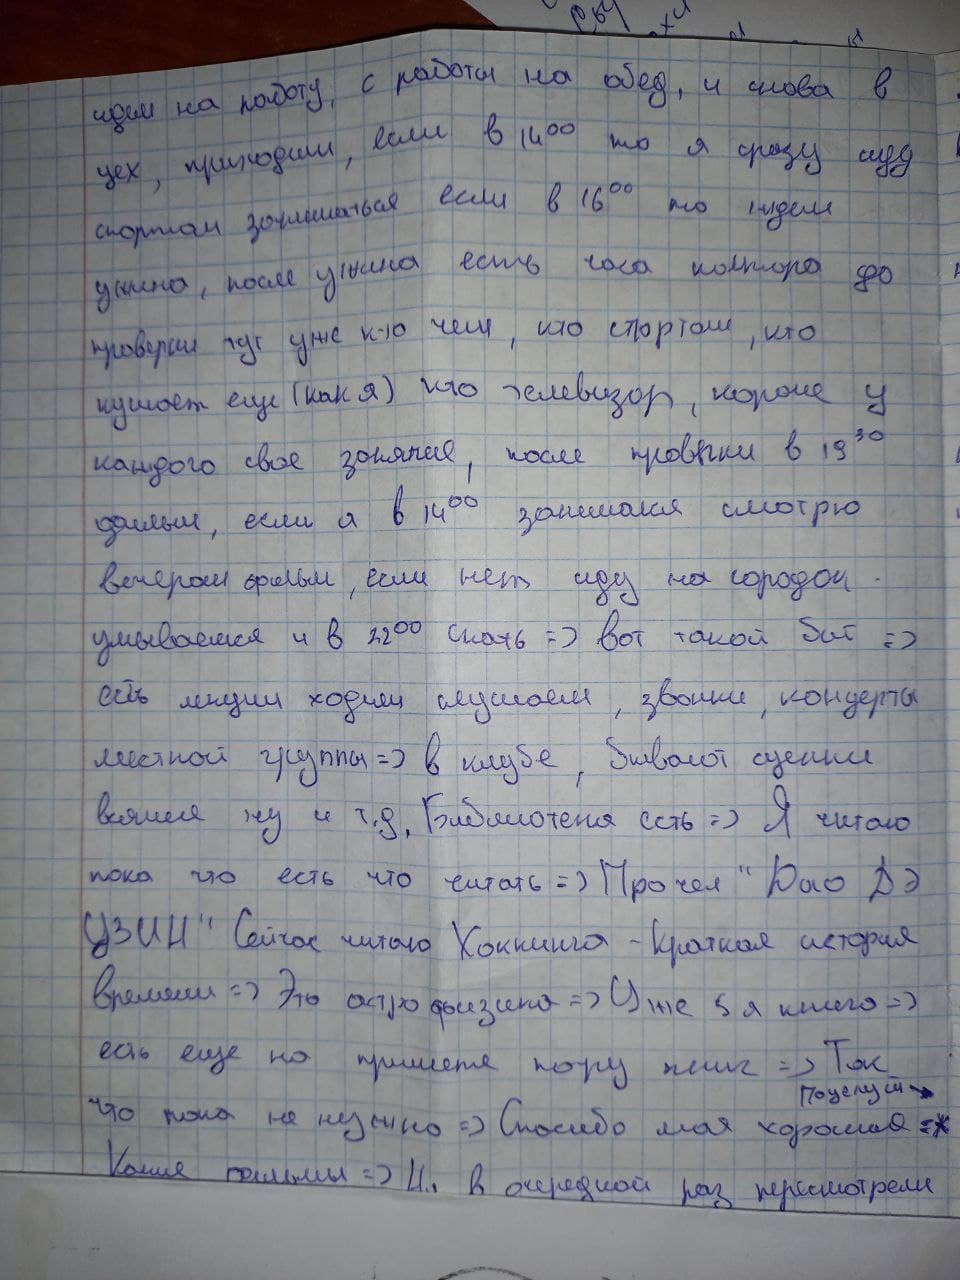 идем на работу, с работы на обед, и снова в
цех, приходим, если в 14⁰⁰ то я сразу иду
спортом заниматься если в 16⁰⁰ то идем
ужина, после ужина есть часа полтора до
проверки тут уже к-то чем, кто спортом, кто
кушает еще (как я) кто телевизор, короче у
каждого свое занятие, после проверки в 19³⁰
фильм, если я в 14⁰⁰ занимался смотрю
вечером фильм, если нет иду на городок.
умываемся и в 22⁰⁰ спать => вот такой быт =>
есть лекции ходим слушаем, звонки, концерты
местной группы => в клубе, бывают сценки
всякие ну и т.д. Библиотека есть => Я читаю
пока что есть что читать => Прочел "Дао Дэ
Цзин" Сейчас читаю Хоккинга - Краткая история
времени => Это астрофизика => Уже 5 я книга =>
есть еще на примете пару книг => Так
Поцелуй →
что пока не нужно => Спасибо моя хорошая =*
Какие фильмы => Н.. в очередной раз пересмотрели